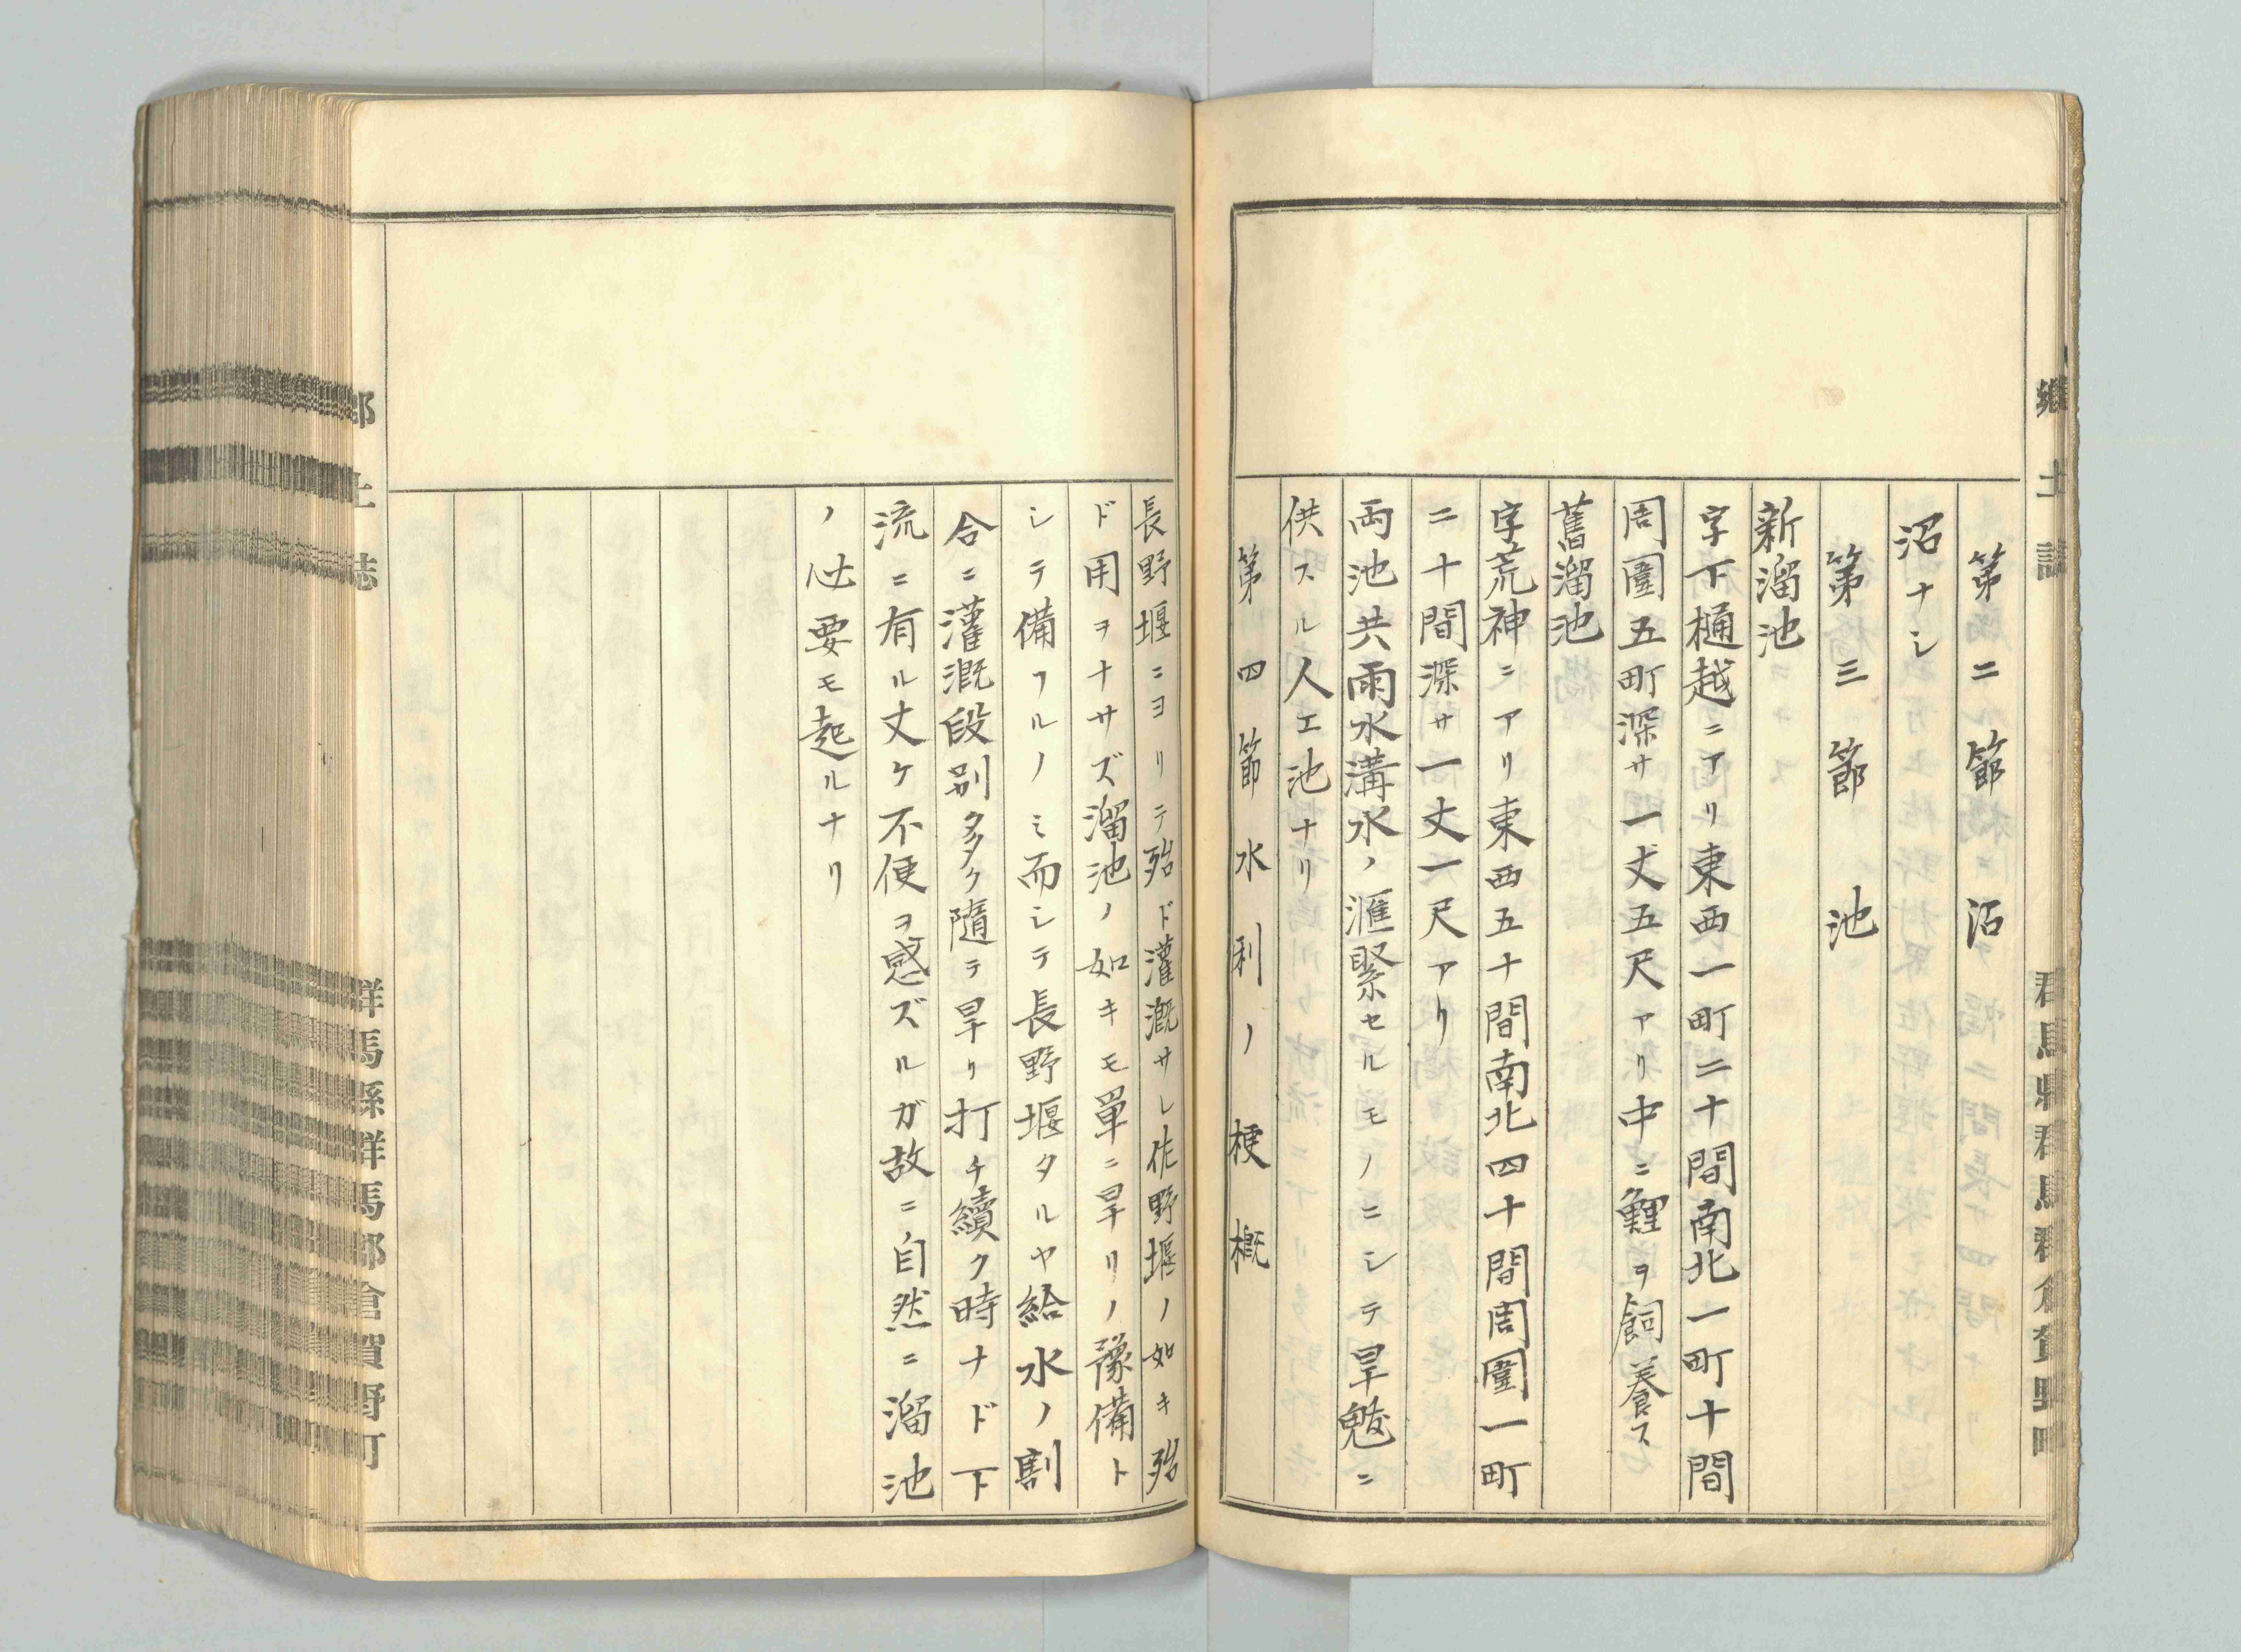 郷土誌
群馬縣群馬郡倉賀野町
第二節 沼
沼ナシ
第三節 池
新溜池
字下樋越ニアリ東西一町二十間南北一町十間
周圍五町深サ一丈五尺アリ中ニ鯉ヲ飼養ス
舊溜池
字荒神ニアリ東西五十間南北四十間周圍一町
二十間深サ一丈一尺アリ
両池共雨水溝水ノ滙緊セルモノニシテ旱魃ニ
供スル人工池ナリ
第四節 水利ノ梗概
長野堰ニヨリテ殆ド灌漑サレ佐野堰ノ如キ殆
ド用ヲナサズ溜池ノ如キモ單ニ旱リノ豫備ト
シテ備フルノミ而シテ長野堰タルヤ給水ノ割
合ニ灌漑段別多ク隨テ旱リ打チ續ク時ナド下
流ニ有ル丈ケ不便ヲ感ズルガ故ニ自然ニ溜池
ノ必要モ起ルナリ
郷土誌
群馬縣群馬郡倉賀野町